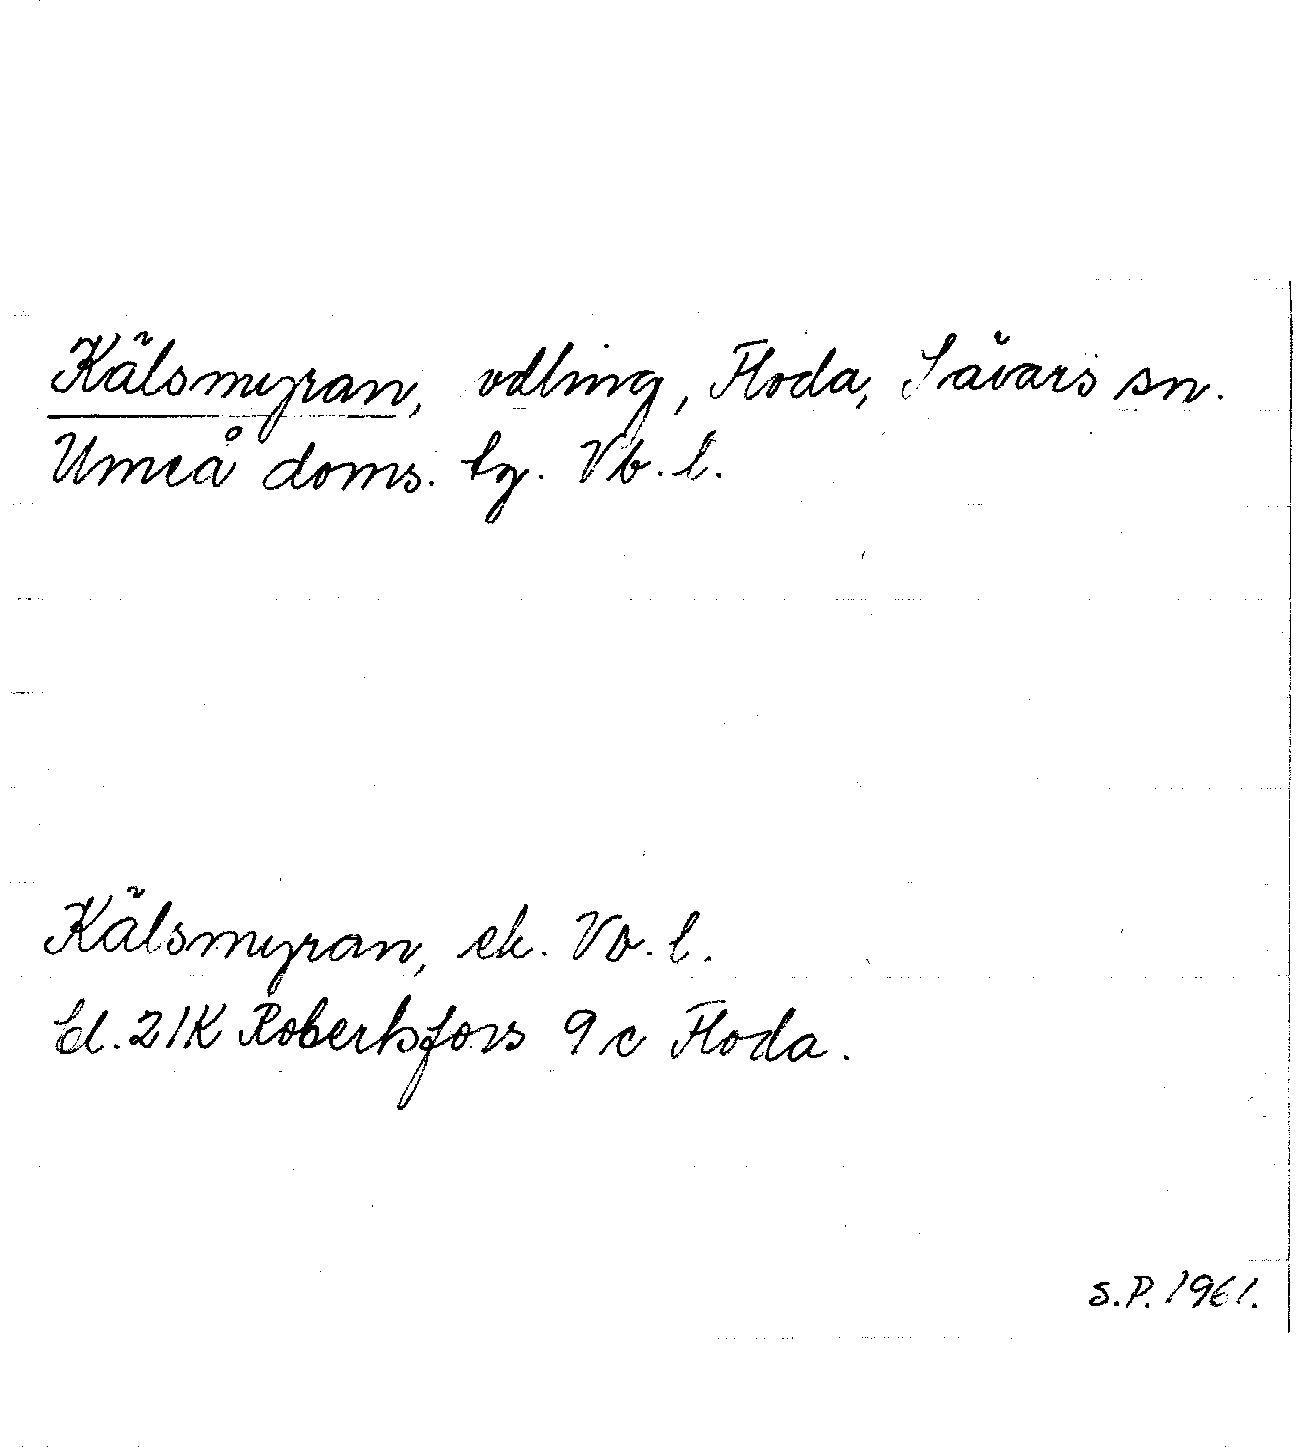 Kälsmyran, odling, Floda, Sävars sn.
Umeå doms. tg. Vb. l.
Kälsmyran, ek. Vb. l.
bl. 21K Robertsfors 9c Floda.
S.P. 1961.